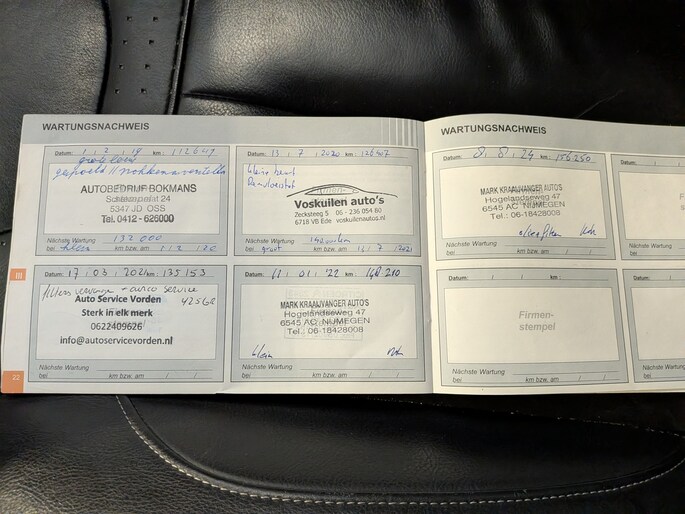 WARTUNGSNACHWEIS
Datum: 1 / 2 / 19 km: 112649
grote beurt
AUTOBEDRIJF BOKMANS
Schakelplat 24
5347 JD OSS
Tel. 0412 - 626000
Nächste Wartung 132 000
bei km bzw. am 1 / 2 / 20
Datum: 13 / 7 / 2020 km: 126907
kleine beurt
Voskuilen auto's
Zecksteeg 5 06 - 236 054 80
6718 VB Ede voskuilenautos.nl
Nächste Wartung
bei groot km bzw. am / 7 / 2021
III
Datum: 17 / 03 / 2021 km: 135 153
+ airco service
Auto Service Vorden
Sterk in elk merk
0622409626
info@autoservicevorden.nl
Nächste Wartung
bei km bzw. am / /
Datum: 11 / 01 / 22 km: 148 210
MARK KRAAIJVANGER AUTO'S
Hogelandseweg 47
6545 AC NIJMEGEN
Tel.: 06-18428008
klein
Nächste Wartung
bei km bzw. am / /
22
WARTUNGSNACHWEIS
Datum: 8 / 8 / 24 km: 156.250
MARK KRAAIJVANGER AUTO'S
Hogelandseweg 47
6545 AC NIJMEGEN
Tel.: 06-18428008
Nächste Wartung
bei km bzw. am / /
Datum: / / km:
Firmen-
stempel
Nächste Wartung
bei km bzw. am / /
Datum: /
Nächste Wartung
bei
Datum: /
Nächste Wartung
bei